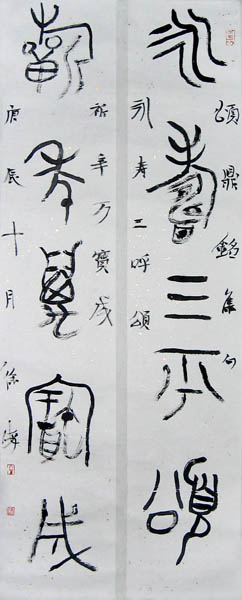 頌鼎銘集句
永壽三乎頌
永寿三呼頌
祈年万寶成
祈年萬寶成
庚辰十月徐